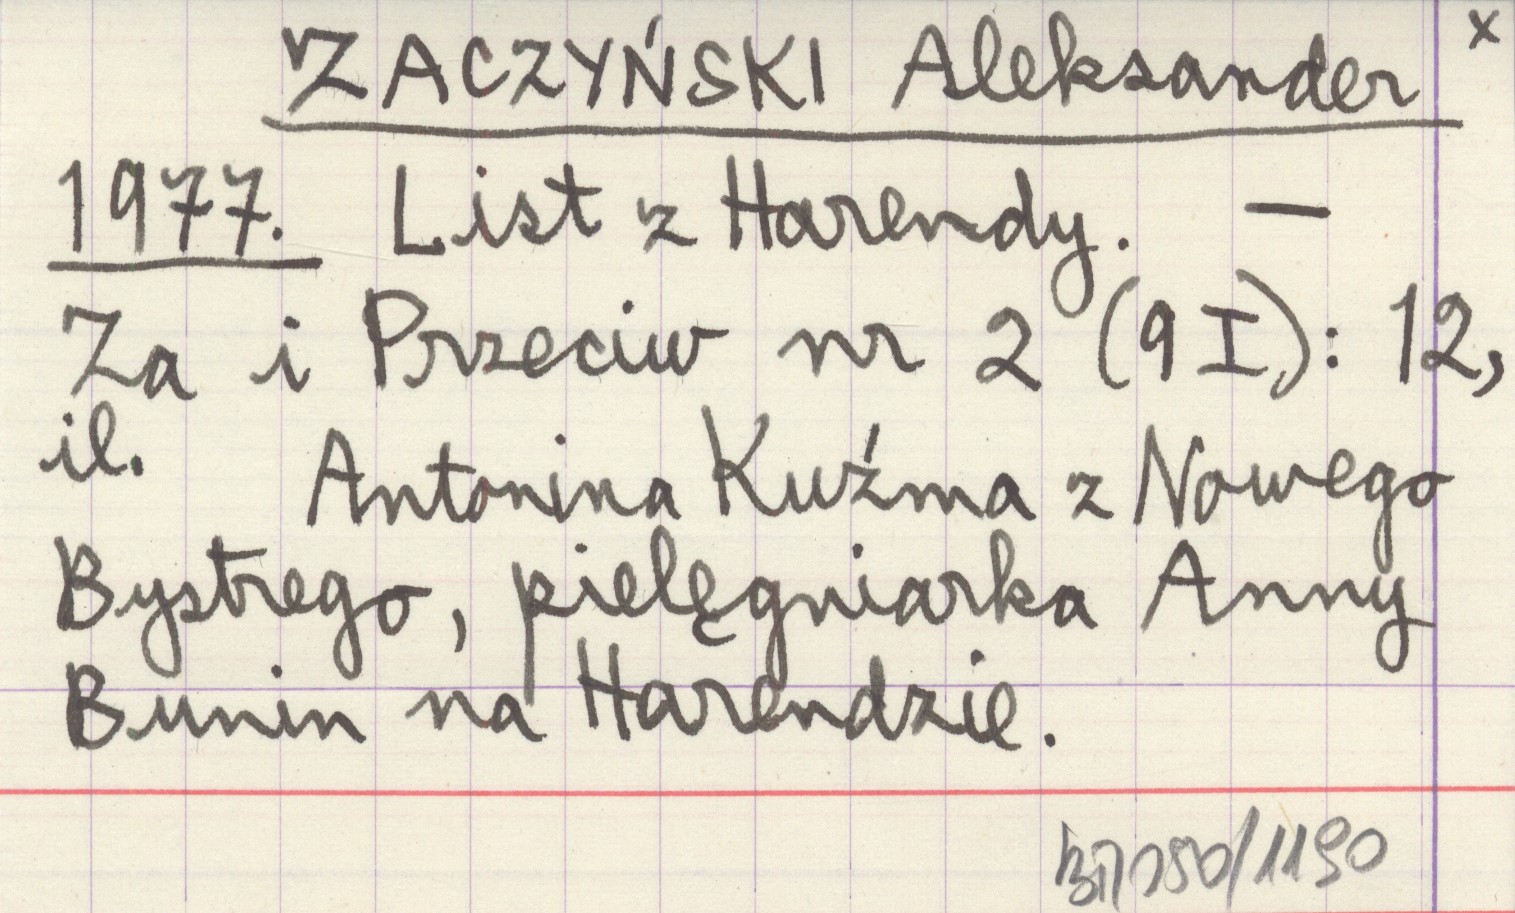 x
ZACZYŃSKI Aleksander
1977. List z Harendy. —
Za i Przeciw nr 2 (9 I): 12,
il.
Antonina Kuźma z Nowego
Bystrego, pielęgniarka Anny
Bunin na Harendzie.